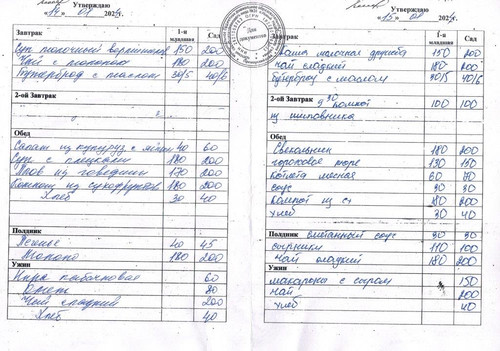 Утверждаю
«14» 01 2025г.
Завтрак 1-я младшая Сад
Суп молочный вермишелев 150 200
Чай с молоком 180 200
Бутерброд с маслом 30/5 40/6
2-ой Завтрак
Обед
Салат из кукурузы с яйцом 40 60
Суп с клецками 180 200
Плов из говядины 170 200
Компот из сухофруктов 180 200
Хлеб 30 40
Полдник
Печенье 40 45
Молоко 180 200
Ужин
Икра кабачковая 60
Омлет 80
Чай сладкий 200
Хлеб 40
Для документов
Утверждаю
«15» 01 2025г.
Завтрак 1-я младшая Сад
Каша молочная дружба 150 200
Чай сладкий 180 200
Бутерброд с маслом 30/5 40/6
2-ой Завтрак 9 30 компот 100 100
из шиповника
Обед
Свекольник 180 200
гороховое пюре 130 150
Котлета мясная 60 70
соус 30 30
Компот из с/ф 180 200
хлеб 30 40
Полдник сметанный соус 30 30
сырники 110 100
Чай сладкий 180 200
Ужин
макароны с сыром 150
чай 200
хлеб 40